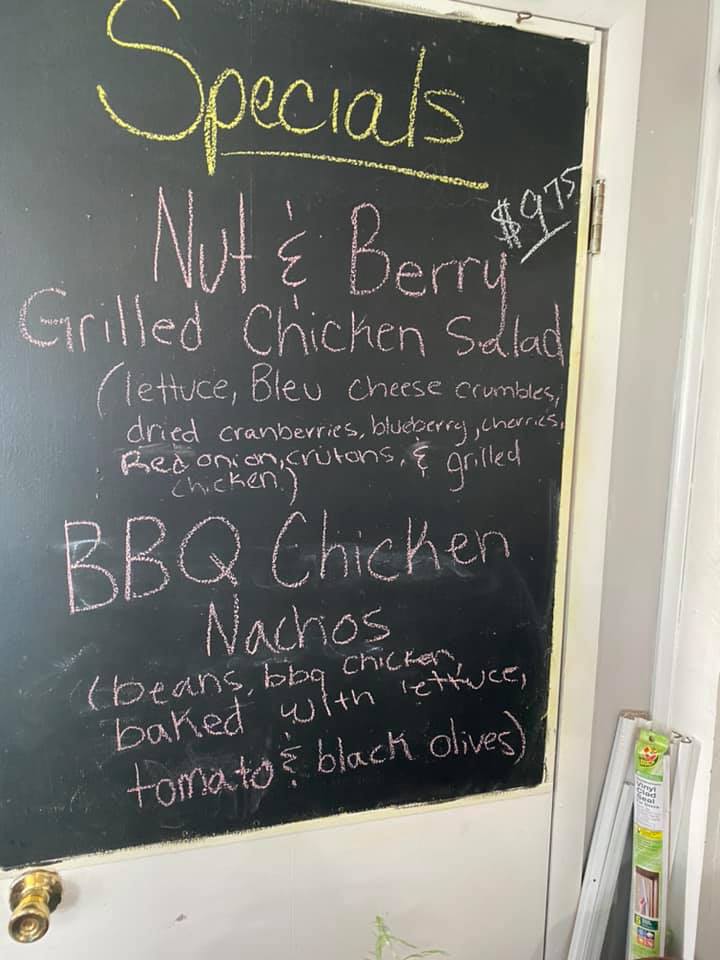 Specials
$9.75
Nut & Berry
Grilled Chicken Salad
(lettuce, Bleu cheese crumbles,
dried cranberries, blueberry, cherries,
Red onion, crutons, & grilled
chicken.)
BBQ Chicken
Nachos
(beans, bbq chicken,
baked with lettuce,
tomato & black olives)
Vinyl
Clad
Seal